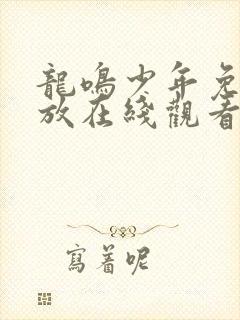 龍鳴少年免
放在綫觀看
寫着呢